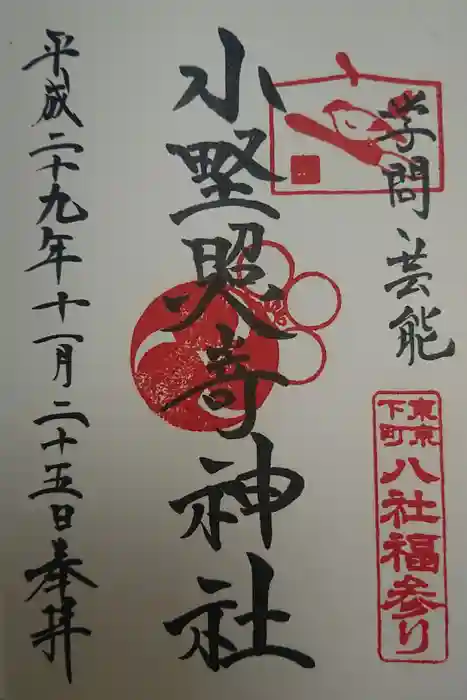 学問、芸能
東京
下町
八社福参り
小野照崎神社
平成二十九年十一月二十五日奉拝